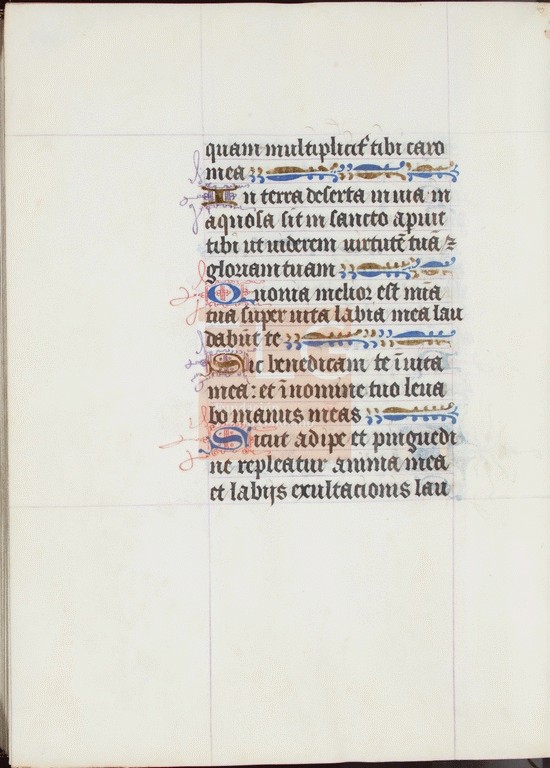 quam multiplicit͛ tibi caro
mea
In terra deserta in uia in
aquosa sit in sancto apuit
tibi ut uiderem uirtutē tuā ⁊
gloriam tuam
Quonia melior est mia
tua super uita labia mea lau
dabūt te
Sic benedicam te ī uita
mea: et ī nomine tuo leua
bo manus meas
Sicut adipe et pinguedi
ne repleatur anima mea
et labijs exultacionis lau